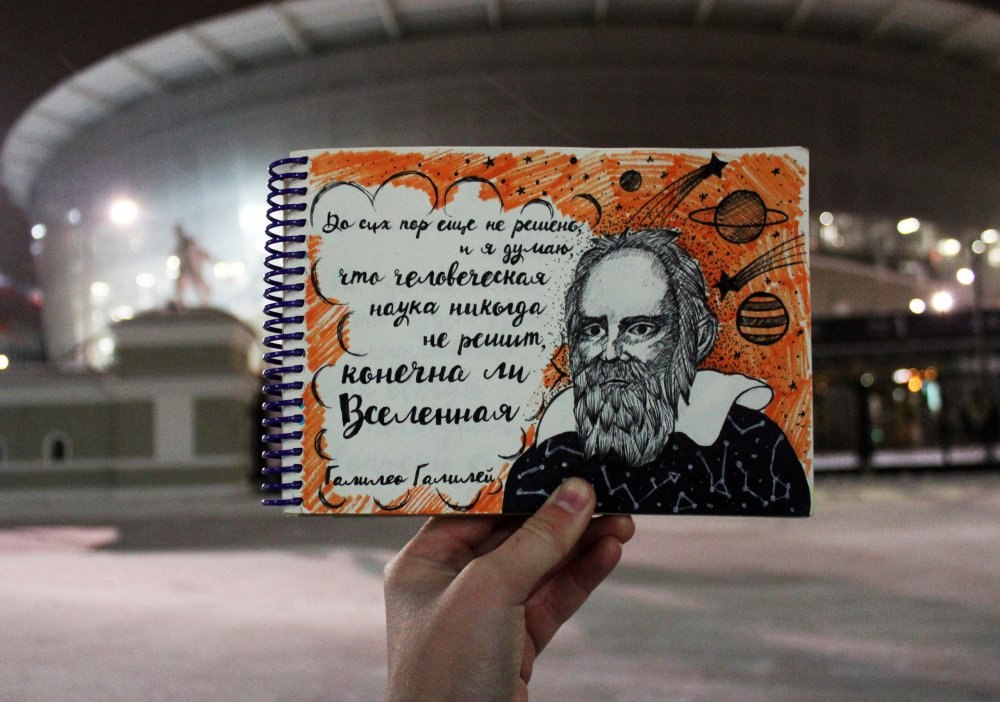 До сих пор еще не решено,
и я думаю,
что человеческая
наука никогда
не решит,
конечна ли
Вселенная
Галилео Галилей